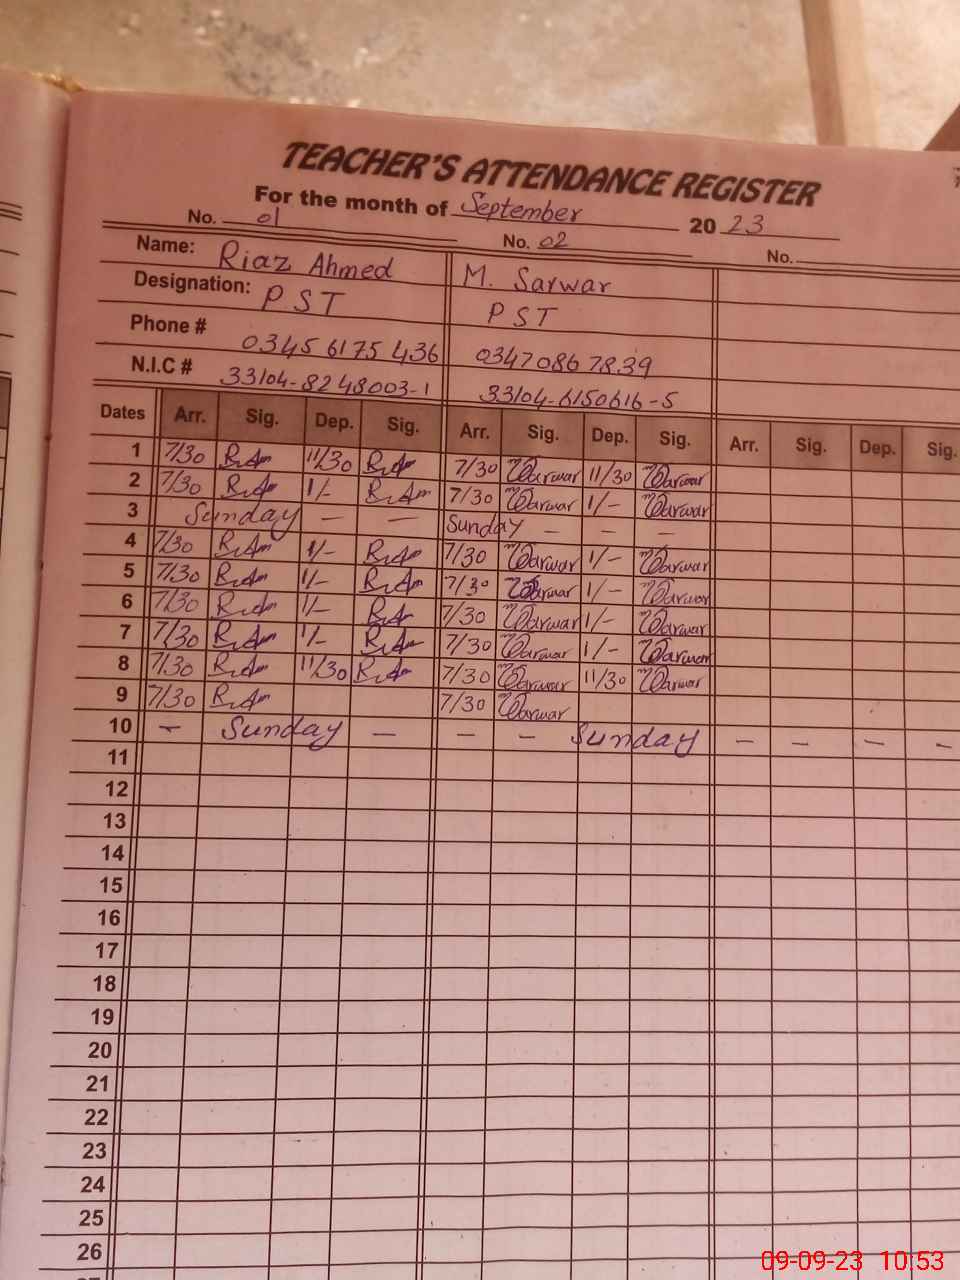 TEACHER'S ATTENDANCE REGISTER
For the month of September 2023
No. 01 No. 02 No.
Name: Riaz Ahmed M. Sarwar
Designation: PST PST
Phone # 0345 6175 436 0347086 7839
N.I.C # 33104-8248003-1 33104-6150616-5
Dates Arr. Sig. Dep. Sig. Arr. Sig. Dep. Sig. Arr. Sig. Dep. Sig.
1 7/30 11/30 7/30 Sarwar 11/30 Sarwar
2 7/30 1/- 7/30 Sarwar 1/- Sarwar
3 Sunday — — Sunday — — —
4 7/30 1/- 7/30 Sarwar 1/- Sarwar
5 7/30 1/- 7/30 Sarwar 1/- Sarwar
6 7/30 1/- 7/30 Sarwar 1/- Sarwar
7 7/30 1/- 7/30 Sarwar 1/- Sarwar
8 7/30 11/30 7/30 Sarwar 11/30 Sarwar
9 7/30 7/30 Sarwar
10 — Sunday — — — Sunday — — — —
11
12
13
14
15
16
17
18
19
20
21
22
23
24
25
26
09-09-23 10:53